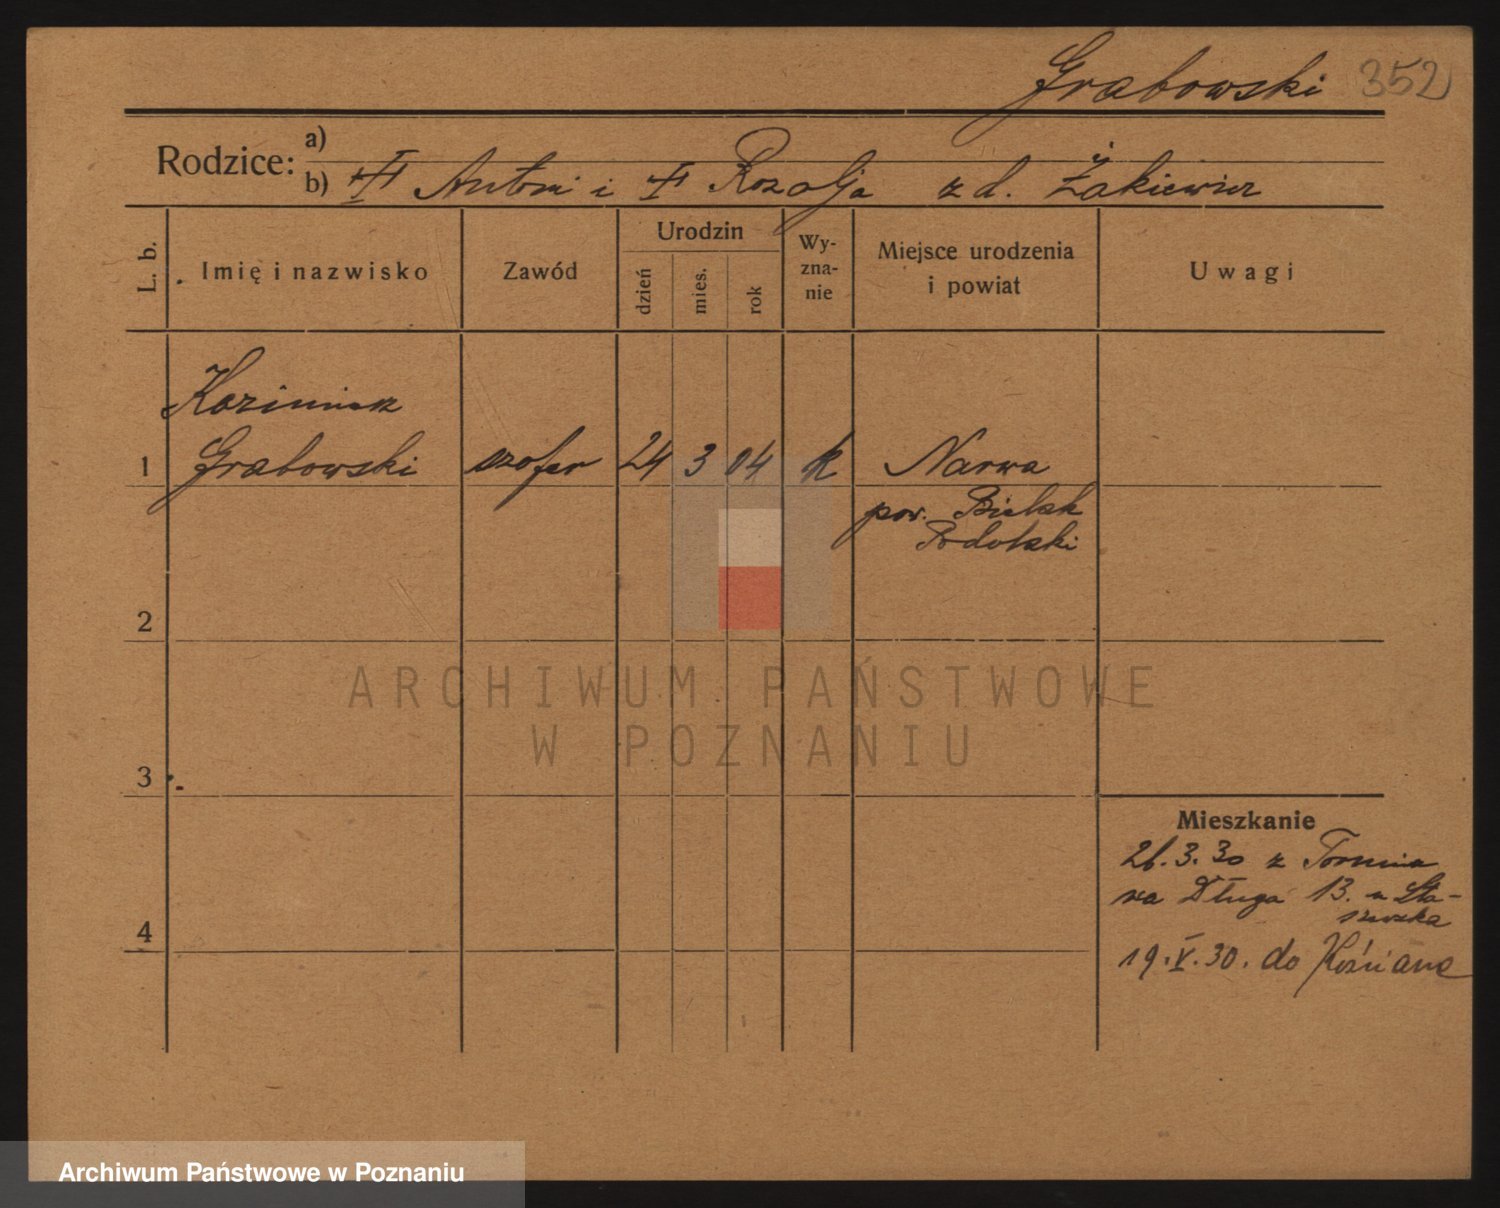 Grabowski 352
Rodzice: a)
b) Antoni i Rozalja z d. Żakiewicz
L. b.
Imię i nazwisko
Zawód
Urodzin
dzień
mies.
rok
Wy-
zna-
nie
Miejsce urodzenia
i powiat
Uwagi
Kazimierz
1 Grabowski szofer 24 3 04 k Narwa
pow. Bielsk
Podolski
2
ARCHIWUM PAŃSTWOWE
W POZNANIU
3
Mieszkanie
26.3.30 z Torunia
na Długa 13. u Sta-
szewska
4
19.V.30. do Kościana
Archiwum Państwowe w Poznaniu